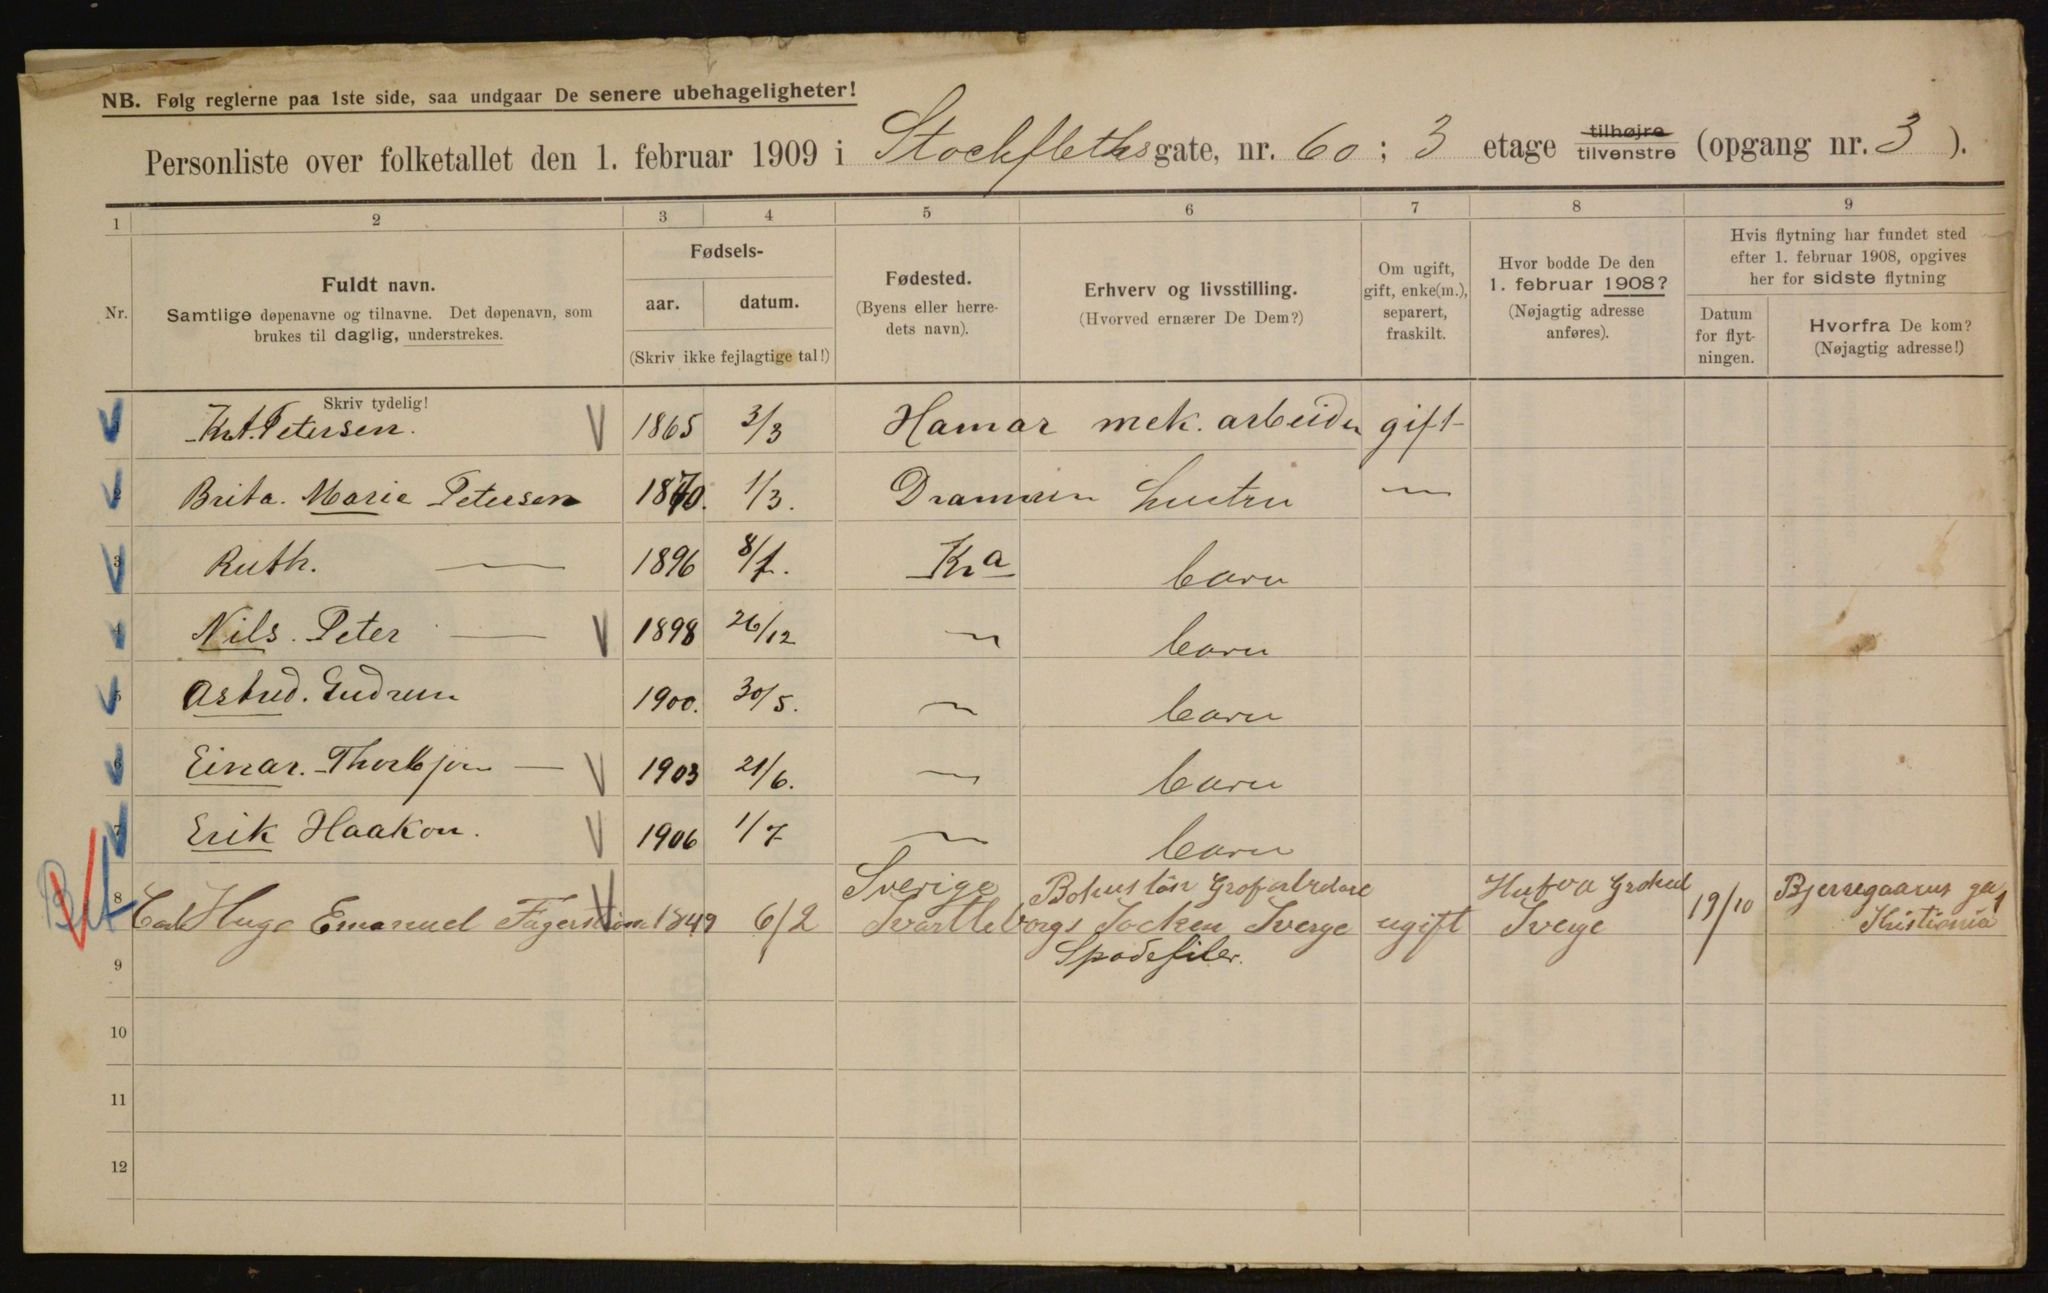 NB. Følg reglerne paa 1ste side, saa undgaar De senere ubehageligheter!
Personliste over folketallet den 1. februar 1909 i Stockflethsgate, nr. 60 ; 3 etage tilhøjre tilvenstre (opgang nr. 3 ).
1 2 3 4 5 6 7 8 9
Nr.
Fuldt navn.
Samtlige døpenavne og tilnavne. Det døpenavn, som
brukes til daglig, understrekes.
Fødsels-
aar. datum.
(Skriv ikke fejlagtige tal!)
Fødested.
(Byens eller herre-
dets navn).
Erhverv og livsstilling.
(Hvorved ernærer De Dem?)
Om ugift,
gift, enke(m.),
separert,
fraskilt.
Hvor bodde De den
1. februar 1908?
(Nøjagtig adresse
anføres).
Hvis flytning har fundet sted
efter 1. februar 1908, opgives
her for sidste flytning
Datum
for flyt-
ningen.
Hvorfra De kom?
(Nøjagtig adresse!)
Skriv tydelig!
1 Petersen. 1865 3/3 Hamar mek. arbeider gift
2 Brita. Marie Petersen 1870. 1/3. Drammen hustru —
3 Ruth. — 1896 8/1. Kra barn
4 Nils. Peter — 1898 26/12 — barn
5 Astrid. Gudrun 1900. 30/5. — barn
6 Einar. Thorbjørn — 1903 21/6. — barn
7 Erik Haakon. 1906 1/7 — barn
Sverige Bohuslän
8 Carl Hugo Emanuel Fagerström 1849 6/2 Svarteborgs Socken Sverge ugift Sverge 19/10 Kristiania
9 Spadefiler.
10
11
12